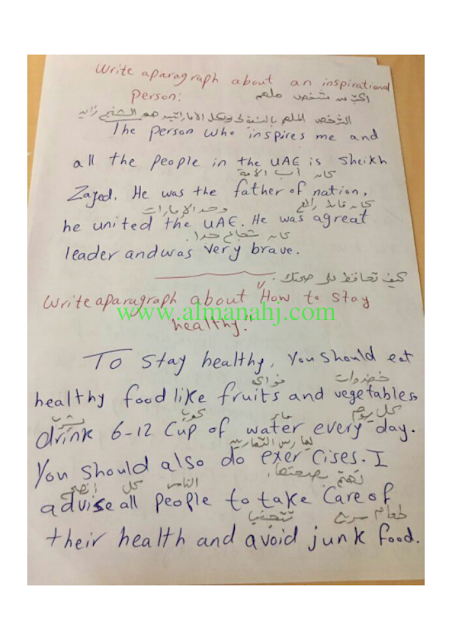 Write aparagraph about an inspirational
person:
اكتب عن شخص ملهم
الشخص الملهم بالنسبة لي ولكل الاماراتيين هو الشيخ زايد
The person who inspires me and
all the people in the UAE is Sheikh
كان أب الأمة
Zayed. He was the father of nation,
كان قائد رائع
وحد الإمارات
he united the UAE. He was agreat
كان شجاع جدا.
leader and was very brave.
كيف تحافظ على صحتك.
Write aparagraph about "How to stay
www.almanahj.com
healthy"
To stay healthy, You should eat
خضروات
فواكه
healthy food like fruits and vegetables
كل يوم
ماء
كوب
يشرب
drink 6-12 Cup of water every day.
تمارس التمارين
You should also do exercises. I
تهتم بصحتها
الناس
كل
أنصح
advise all people to take Care of
طعام سريع
تتجنب
their health and avoid junk food.